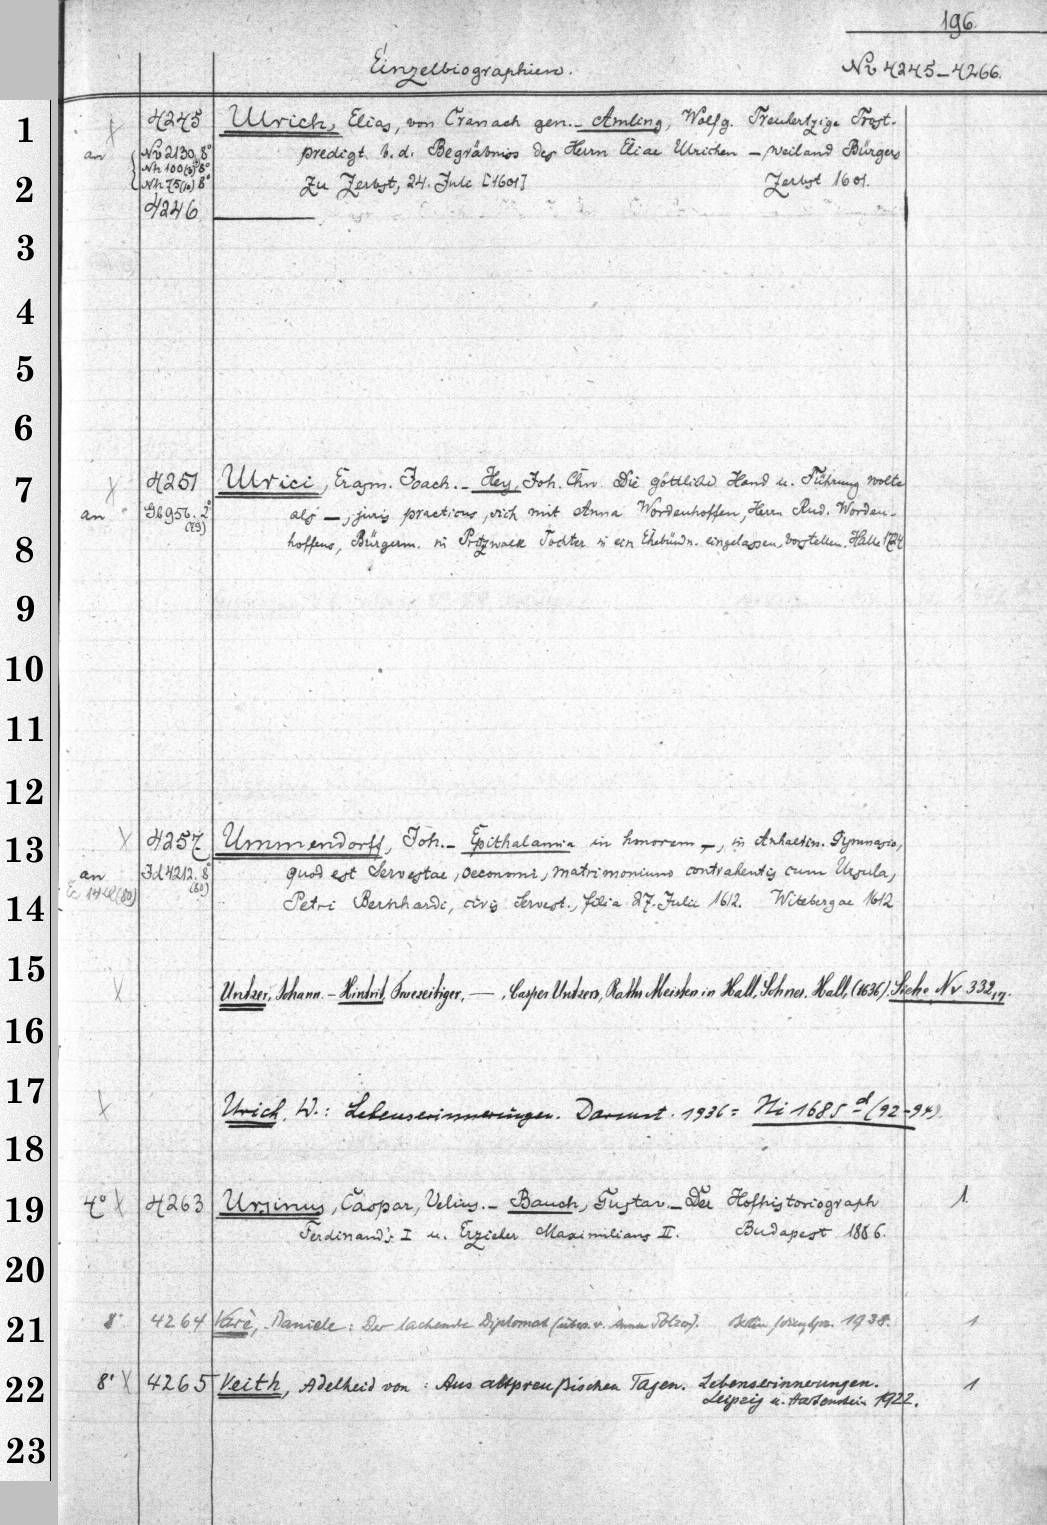 196.
Einzelbiographien.
Nr 4245-4266.
1
4245
Ulrich, Elias, von Cranach gen. - Amling, Wolfg. Treuhertzige Trost-
an
Nr 2130, 8°
Nh 100(3) 8°
Nh 75(10) 8°
predigt b. d. Begräbniss des Herrn Eliae Ulrichen - weiland Bürgers
2
zu Zerbst, 24. Jule [1601]
Zerbst 1601.
4246
3
4
5
6
7
4251
Ulrici, Erasm. Joach. - Hey, Joh. Chn. Die göttliche Hand u. Führung wolte
an
Gb 956. 2°
(29)
als -, juris practicus, sich mit Anna Wordenhoffen, Herrn Rud. Worden-
8
hoffens, Bürgerm. in Pritzwalk Tochter in ein Ehebündn. eingelassen, vorstellen. Halle 1724
9
10
11
12
13
4257
Ummendorff, Joh. - Epithalamia in honorem -, in Anhaltin. Gymnasio,
an
3d 4212. 8°
(80)
quod est Servestae, oeconomi, matrimonium contrahentis cum Ursula,
14
Petri Bernhardi, civis Servest., filia 27. Julii 1612. Witebergae 1612
15
Untzer, Johann. - Hindrit, Frwezeitiger, - , Casper Untzers, Raths Meisters in Hall, Sohnes. Hall, (1636). Siehe Nr 332,17.
16
17
Urich, W.: Lebenserinnerungen. Darmst. 1936 = Ni 1685 d (92-94).
18
19
4° 4263
Ursinus, Caspar, Velius. - Bauch, Gustav. - Der Hofhistoriograph
1
Ferdinands I u. Erzieher Maximilians II. Budapest 1886.
20
21
8° 4264
Varè, Daniele: Der lachende Diplomat (übers. v. Anna Polzer). 1938.
1
22
8° 4265
Veith, Adelheid von: Aus altpreußischen Tagen. Lebenserinnerungen.
1
Leipzig u. Hartenstein 1922.
23